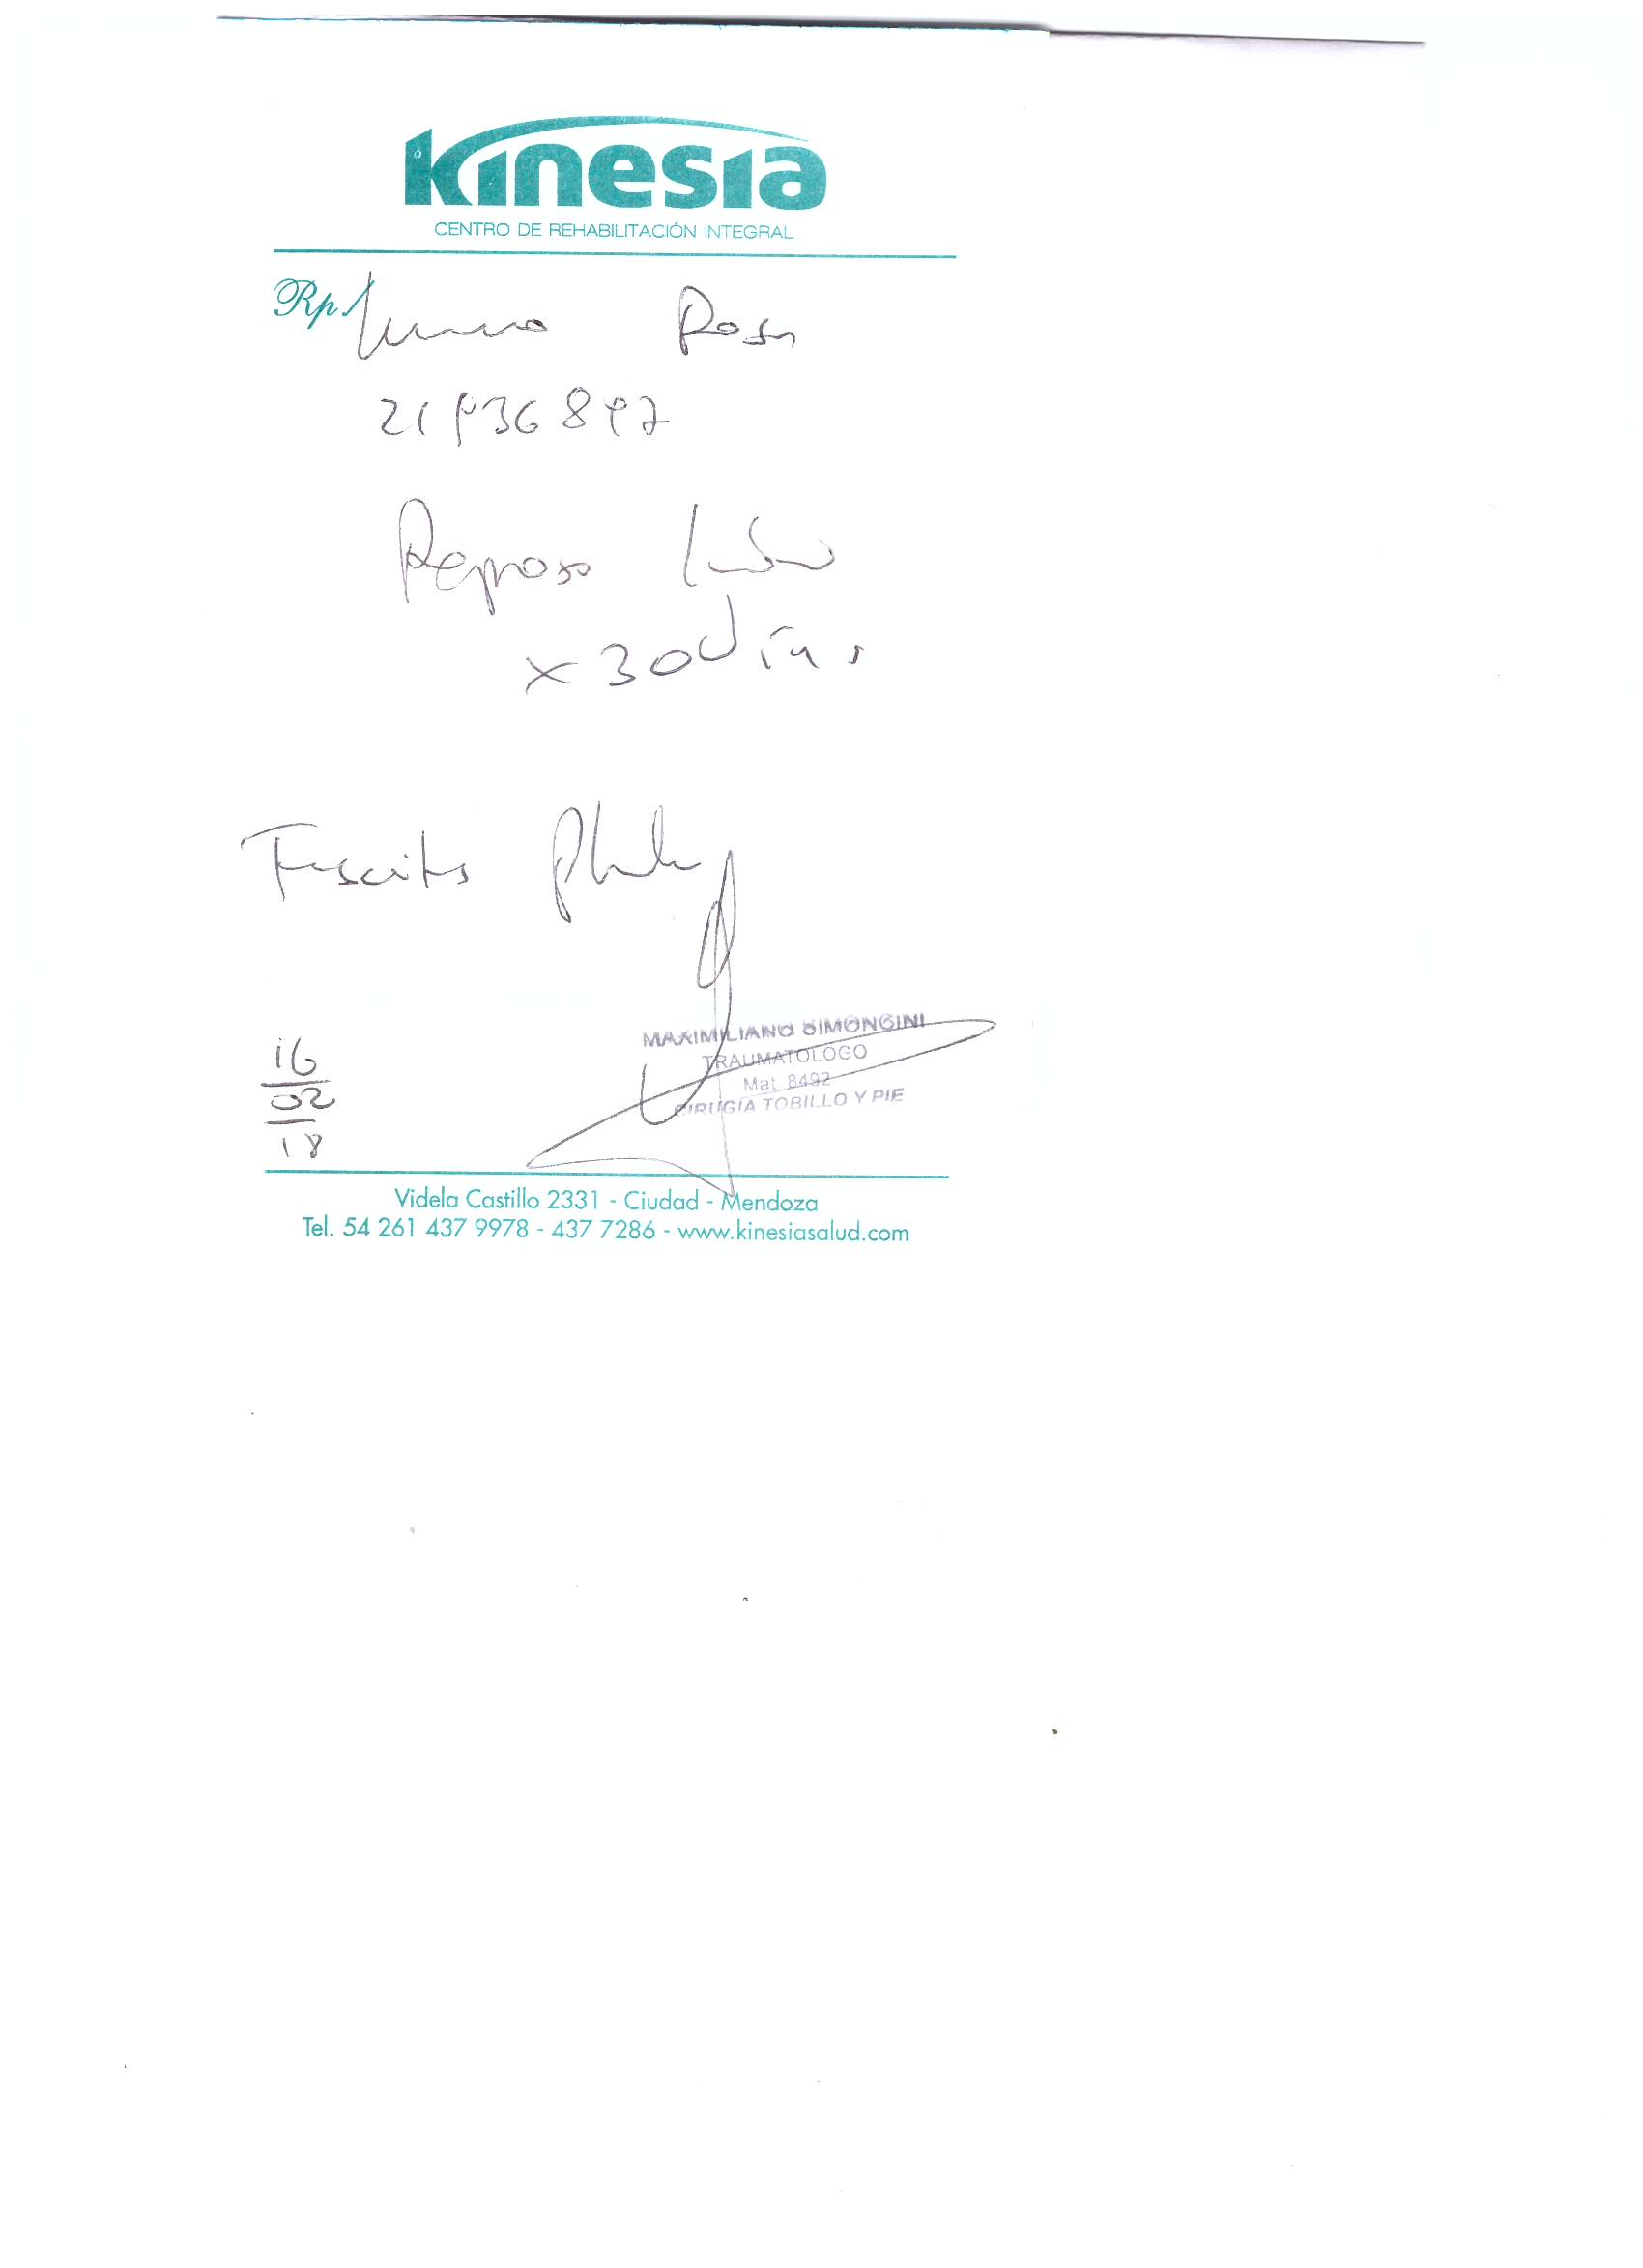 Kinesia
CENTRO DE REHABILITACIÓN INTEGRAL
Rp/ Rosa
Reposo
x 30 días
Fascitis
MAXIMILIANO SIMONCINI
TRAUMATOLOGO
Mat. 8492
CIRUGIA TOBILLO Y PIE
16
02
18
Videla Castillo 2331 - Ciudad - Mendoza
Tel. 54 261 437 9978 - 437 7286 - www.kinesiasalud.com